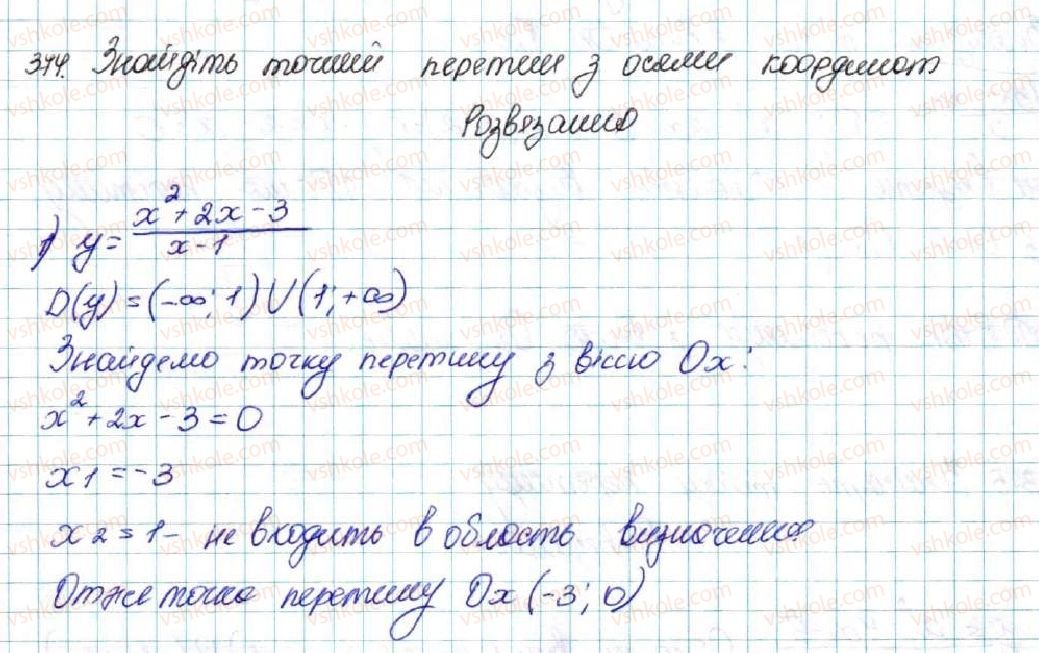 374. Знайдіть точки перетин з осями координат
Розвязання
1) y = x² + 2x - 3 / x - 1
D(y) = (-∞; 1) U (1; +∞)
Знайдемо точку перетину з віссю Ox:
x² + 2x - 3 = 0
x1 = -3
x2 = 1 - не входить в область визначення
Отже точка перетину Ox (-3; 0)